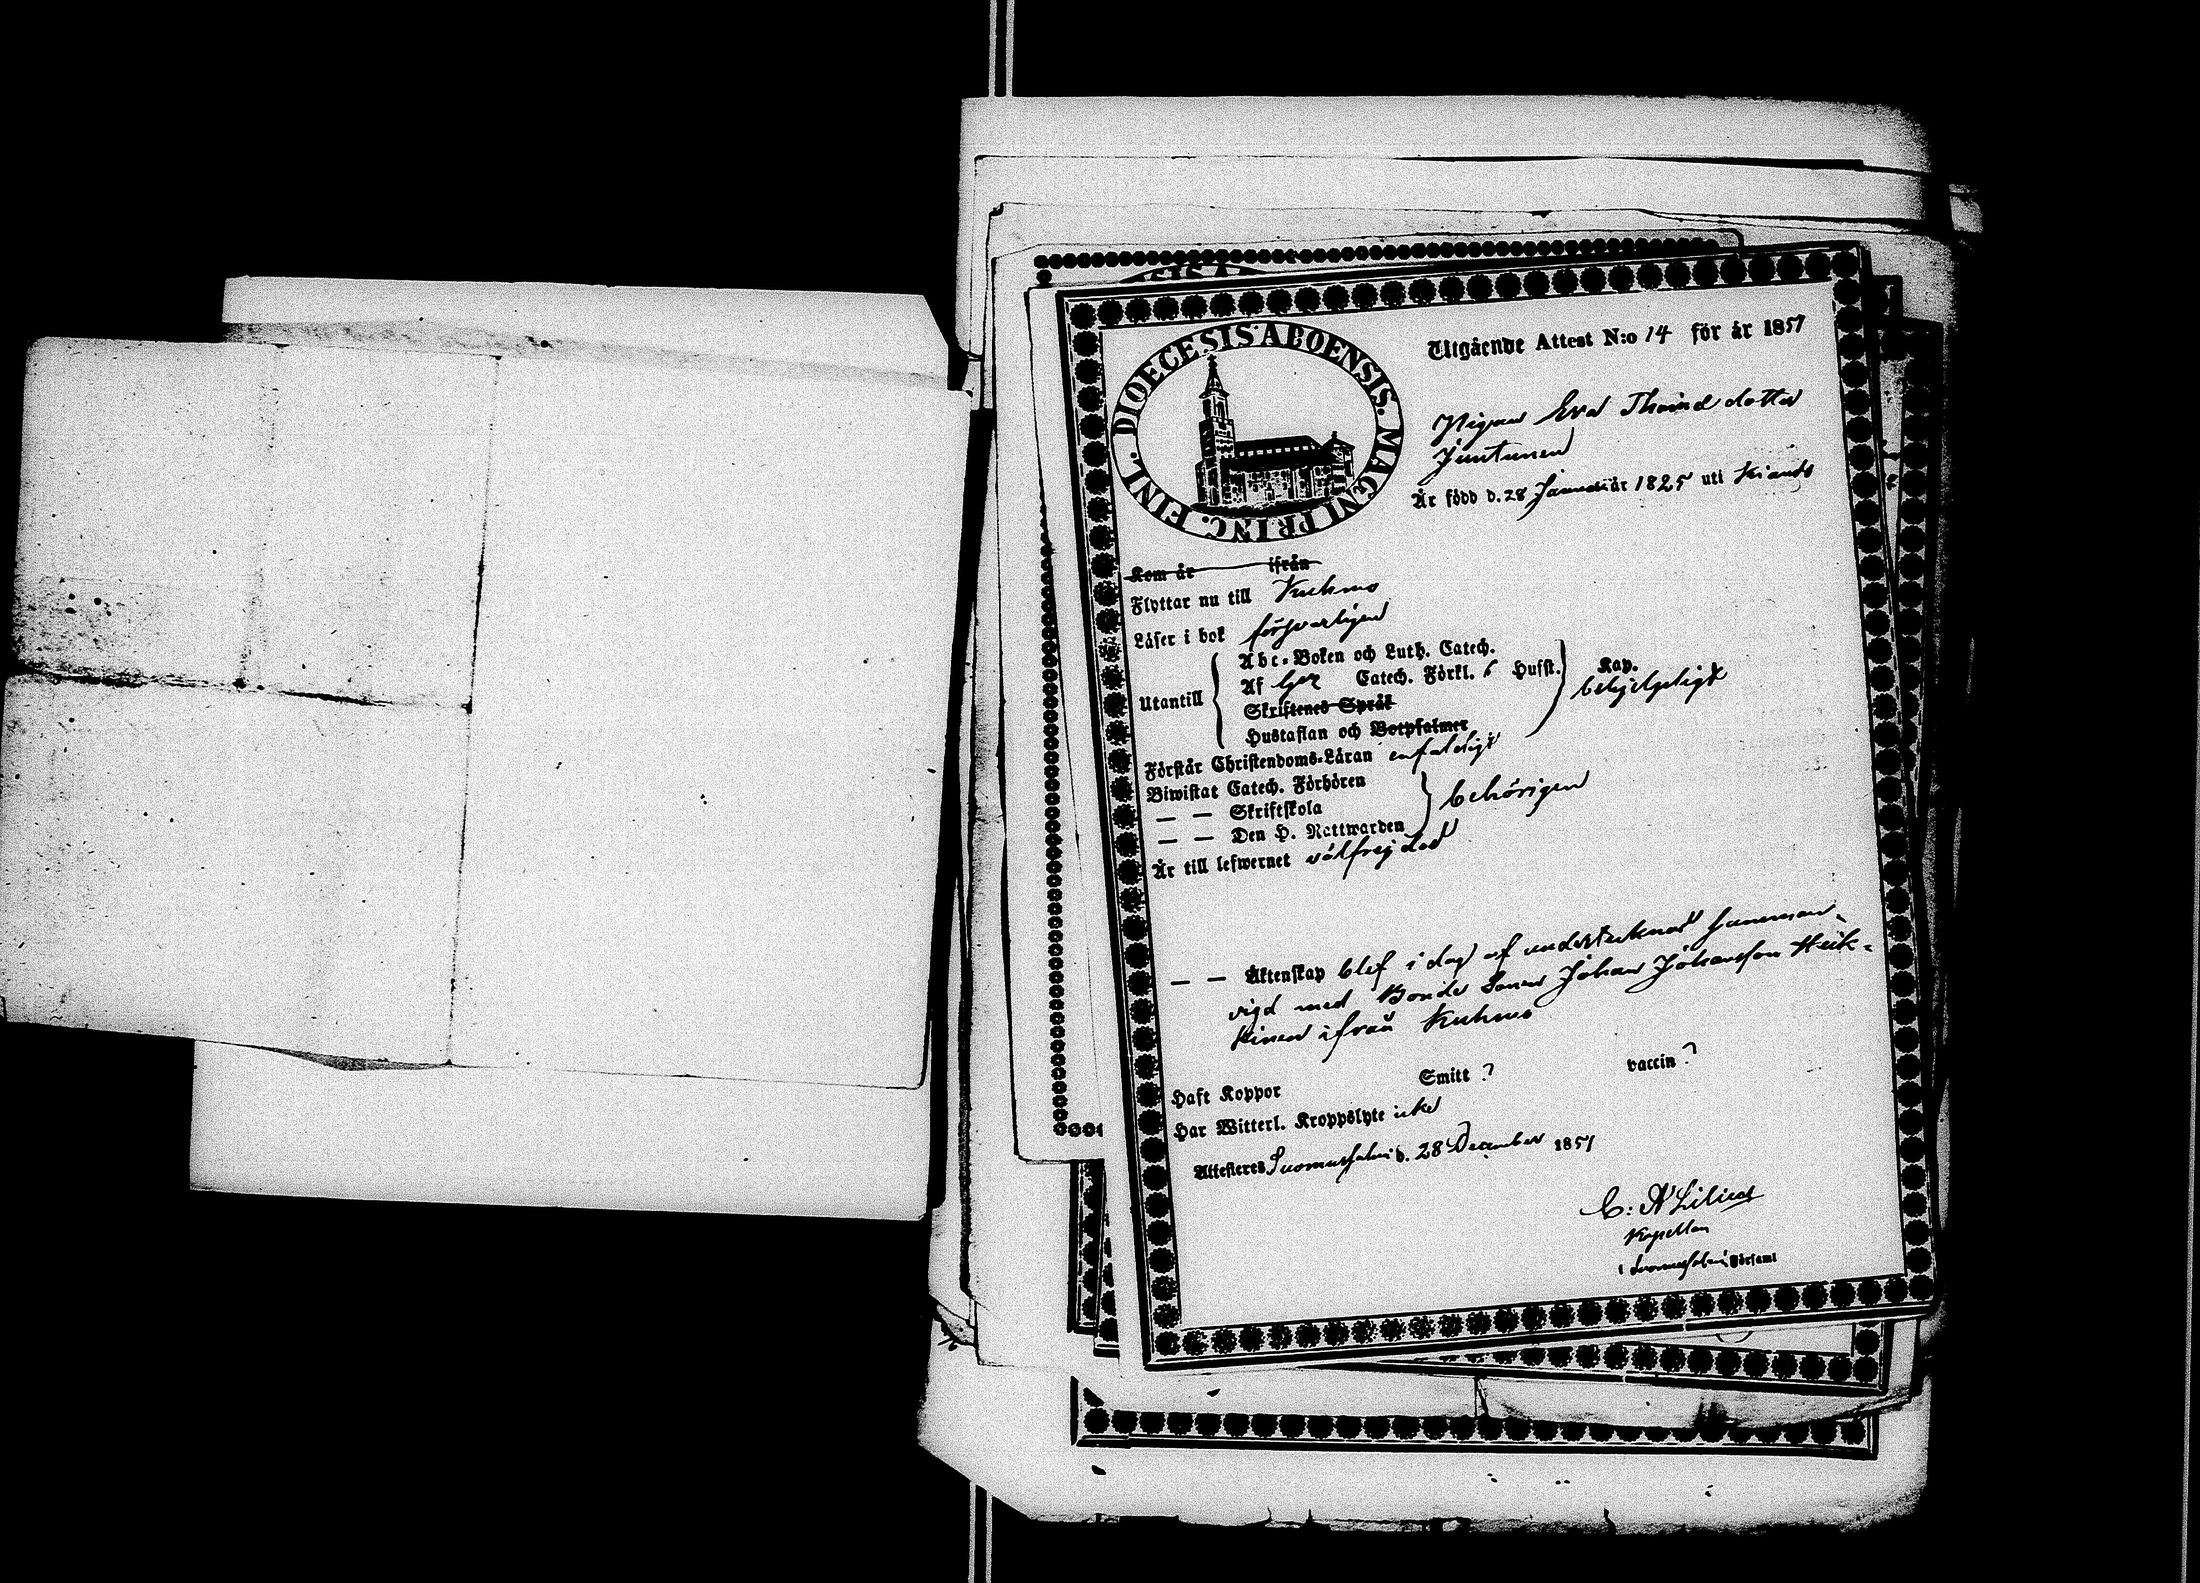 DIOECESIS ABOENSIS. MAGNI PRINC. FINL.
Utgående Attest N:o 14 för år 1857
Pigan Eva Thomd dotter
Juntunen
Är född d. 28 Januari år 1825 uti Kianto
Kom år ifrån
Flyttar nu till Kuhmo
Läser i bok försvarligen
Abc-Boken och Luth. Catech.
Af Catech. Förkl. 6 Hufst. Kap.
Utantill behjelpeligt
Skriftenes Språk
Hustaflan och Botpsalmer
Förstår Christendoms-Läran enfaldigt
Biwistat Catech. Förhören
— — Skriftskola behörigen
— — Den H. Nattwarden
Är till lefwernet välfrejdad
— — Äktenskap blef i dag af undertecknad samman-
vigd med Bonde Sonen Johan Johansson Heik-
kinen ifrån Kuhmo
Haft Koppor Smitt ? vaccin ?
Har Witterl. Kroppslyte icke
Attesteres Suomussalmi d. 28 December 1857
C: A Lilius
Kapellan
i Suomussalmi Församl